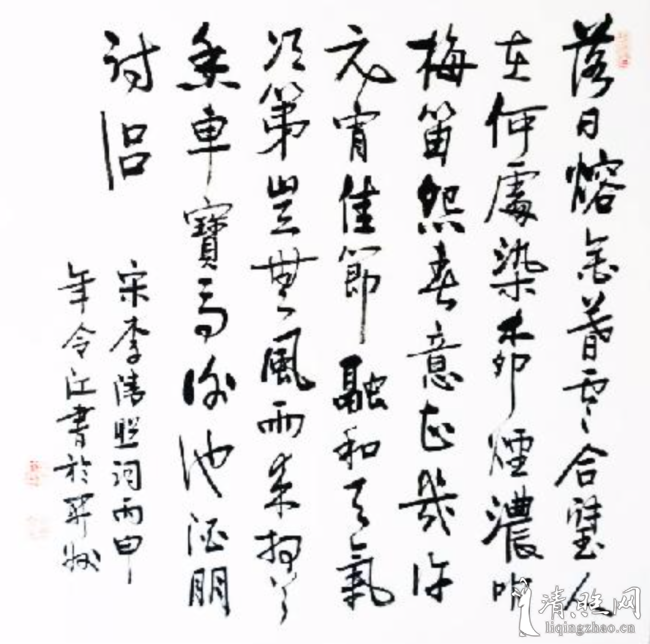 落日熔金暮雲合璧人
在何處染柳煙濃吹
梅笛怨春意知幾許
元宵佳節融和天氣
次第豈無風雨來相召
香車寶馬謝他酒朋
詩侶
宋李清照詞丙申
年令江書於
清照网
liqingzhao.com.cn